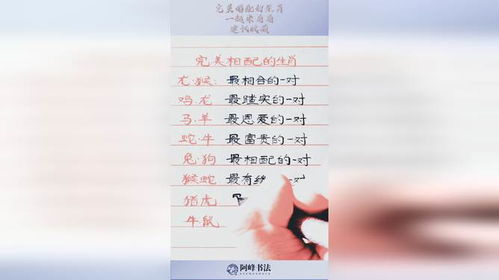 完美婚配的生肖
一起来看看
建议收藏
完美相配的生肖
龙·猴: 最相合的一对
鸡·龙 最踏实的一对
马·羊 最恩爱的一对
蛇·牛 最富贵的一对
兔·狗 最相配的一对
猴蛇 最有 一对
猪虎
牛鼠
阿峰书法